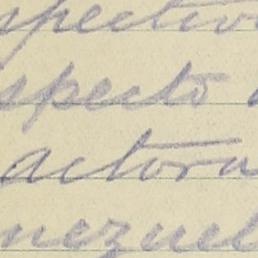 spectiv
specto
actora
nezuel